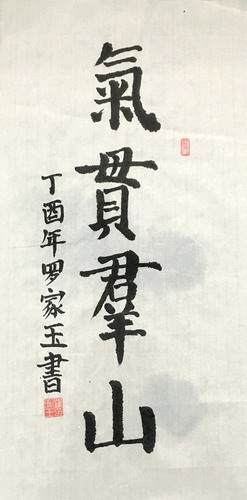 氣貫羣山
丁酉年罗家玉書